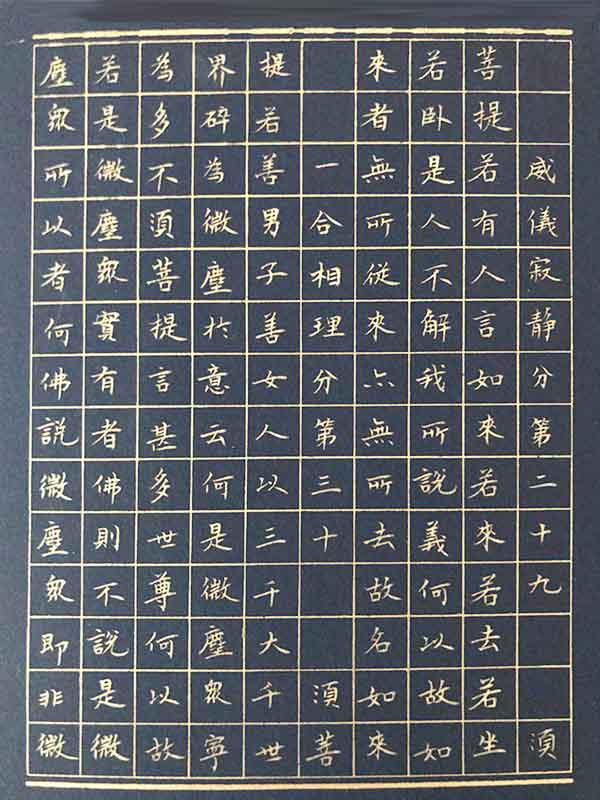 威儀寂靜分第二十九 須
菩提若有人言如來若來若去若坐
若卧是人不解我所說義何以故如
來者無所從來亦無所去故名如來
一合相理分第三十 須菩
提若善男子善女人以三千大千世
界碎為微塵於意云何是微塵眾寧
為多不須菩提言甚多世尊何以故
若是微塵眾實有者佛則不說是微
塵眾所以者何佛說微塵眾即非微